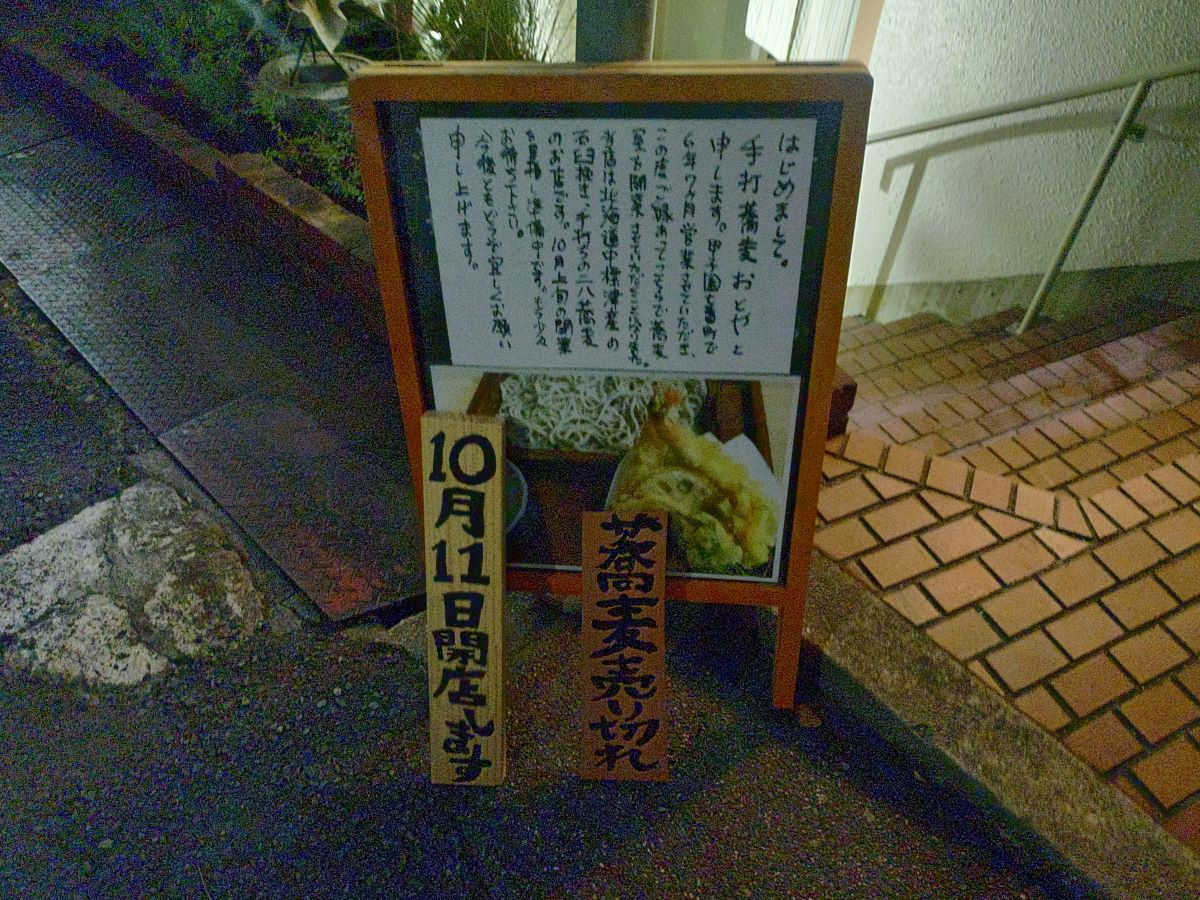 はじめまして。
手打蕎麦おとやと
申します。甲子園七番町で
6年7ヶ月営業させていただき、
この度ご縁あってこちらで蕎麦
屋を開業させていただくことになりました。
当店は北海道中標津産の
石臼挽き手打ちの二八蕎麦
のお店です。10月上旬の開業
を目指し準備中です。もう少々
お待ち下さい。
今後ともどうぞ宜しくお願い
申し上げます。
10月11日開店します
蕎麦売り切れ